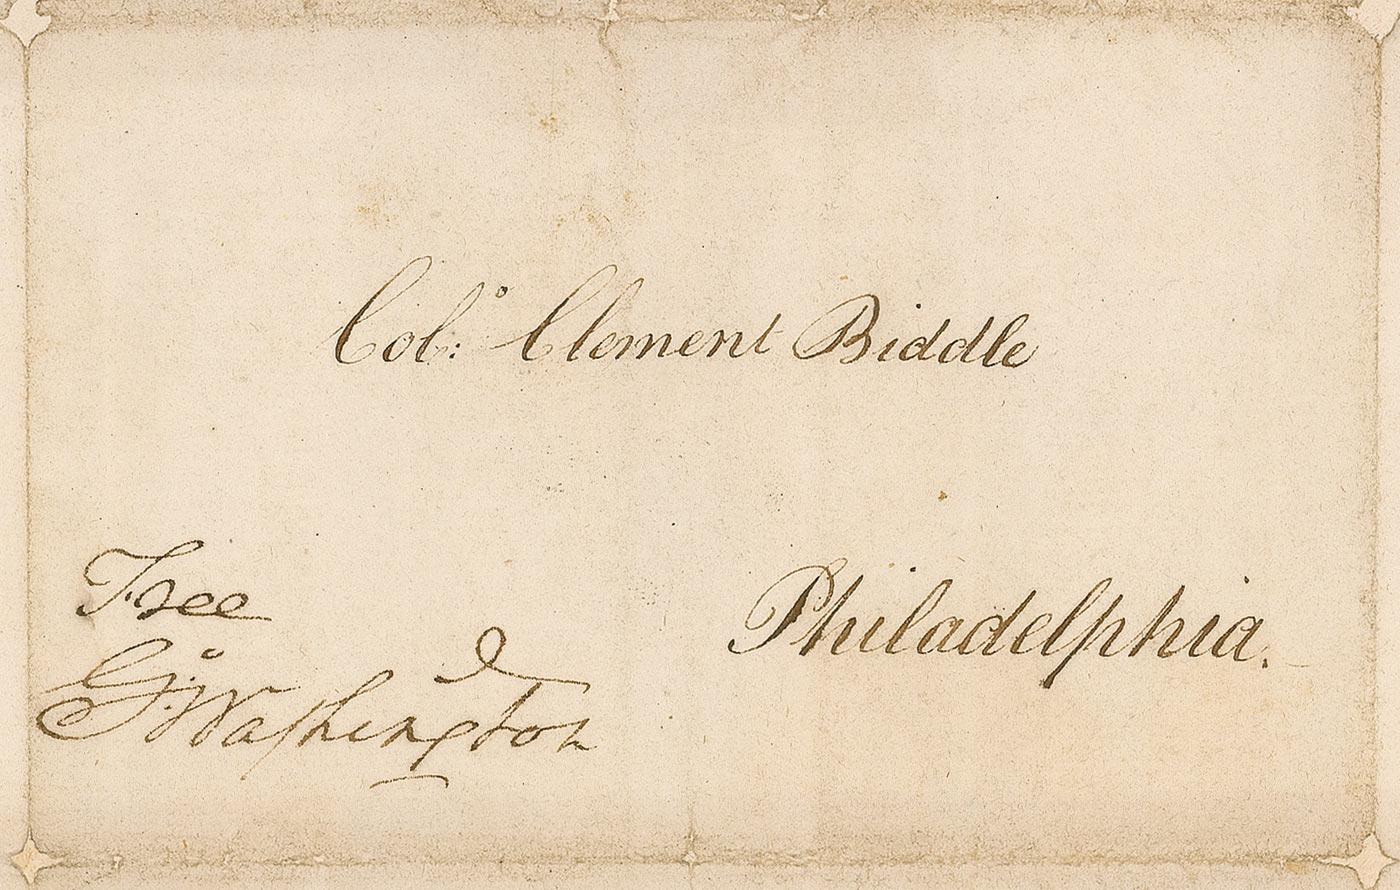 Col.º Clement Biddle
Free
Philadelphia.
Gº Washington